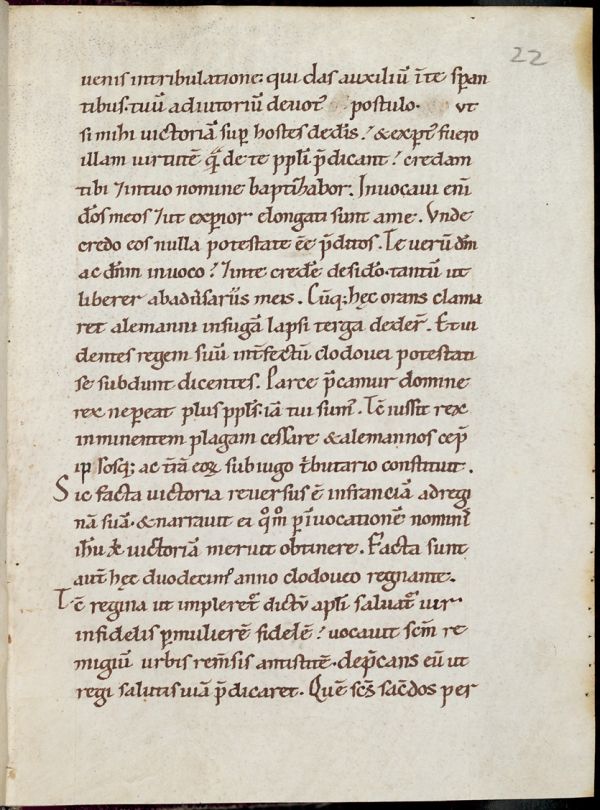 22
uenis intribulatione: qui das auxiliū ī te span
tibus. tuū adiutoriū deuot᷒ postulo. ut
si mihi uictoriā sup hostes dedis? & expt᷒ fuero
illam uirtutē q̄ de te ppl̄i p̄dicant? credam
tibi ⁊ intuo nomine baptizabor. Inuocaui eni
d̄os meos ⁊ ut experior elongati sunt ame. Unde
credo eos nulla potestate ēē p̄ditos. Te uerū dm̄
ac dn̄m inuoco? ⁊ inte credē desido. tantū ut
liberer abaduersariis meis. Cūq; hęc orans clama
ret alemanni infugā lapsi terga dexder̄. Et ui
dentes regem suū int̄fectū clodouei potestati
se subdunt dicentes. Parce p̄camur domine
rex ne pereat plus ppl̄s. iā tui sum᷒. Tc̄ iussit rex
inminentem plagam cessare & alemannos cep̄
ipsosq; ac t̄rā eoꝝ sub iugo t̄butario constituit.
Sic facta uictoria reuersus ē infranciā adregi
nā suā. & narrauit ei qm̊ p inuocationē nominis
ih̄u xp̄i uictoriā meruit obtinere. Facta sunt
aut̄ hęc duodecim᷒ anno clodoueo regnante.
Tc̄ regina ut impleret᷑ dictū apl̄i saluat᷑ uir
infidelis p mulierē fidelē? uocauit scm̄ re
migiū urbis rem̄sis antistitē. dep̄cans eū ut
regi salutis uiā p̄dicaret. Quē sc̄s sac̄dos per